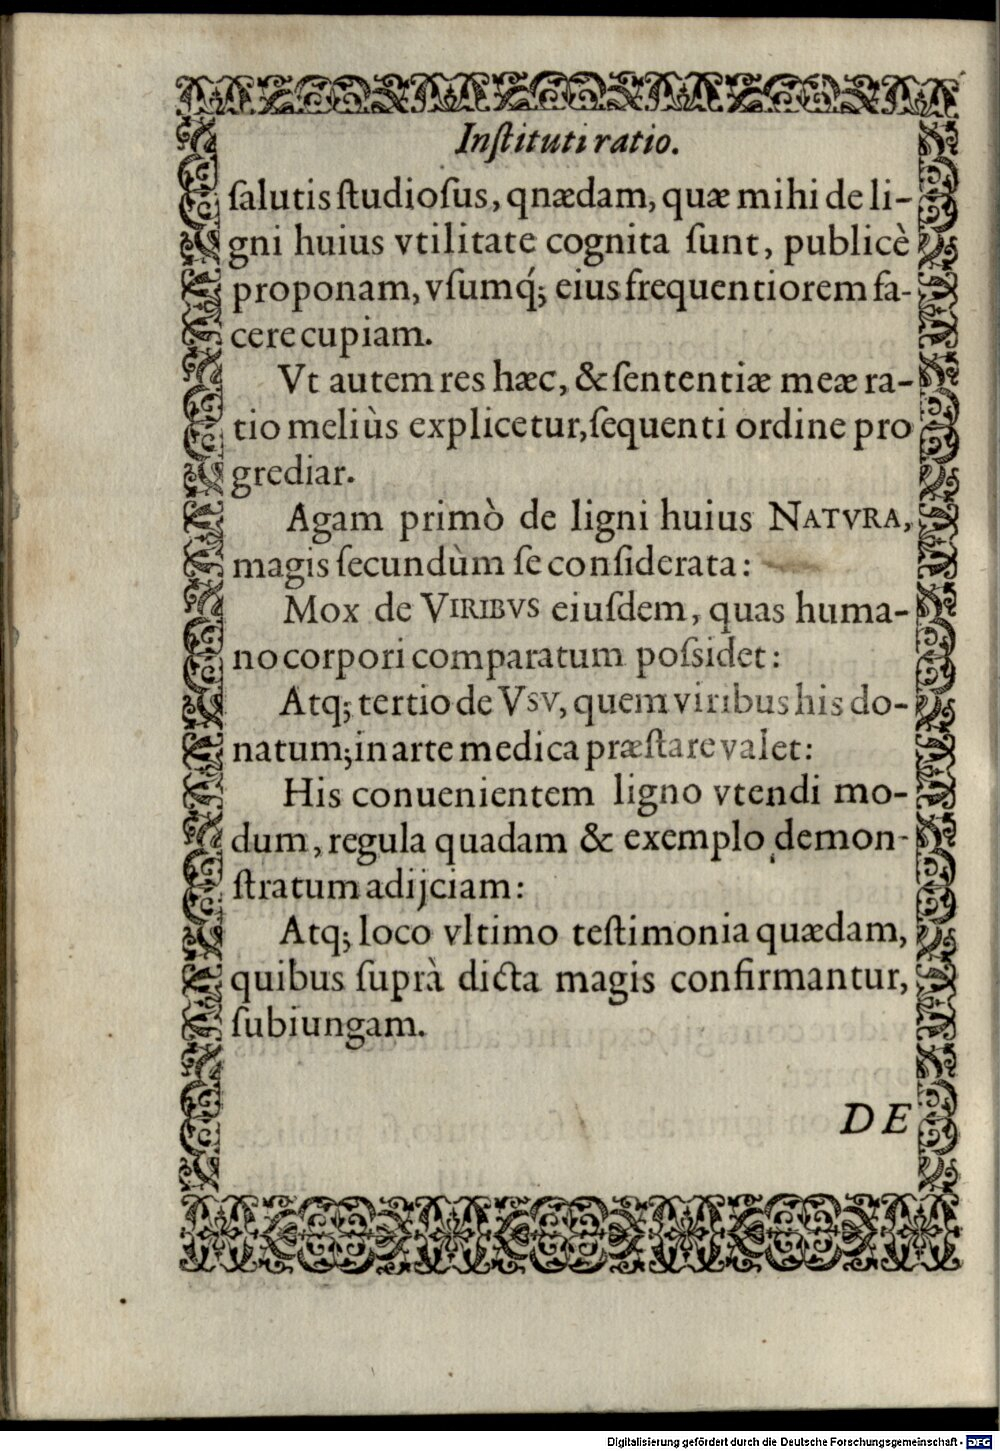 Inſtituti ratio.
ſalutis ſtudioſus, qnædam, quæ mihi de li-
gni huius vtilitate cognita ſunt, publicè
proponam, vſumq́; eius frequentiorem fa-
cere cupiam.
Vt autem res hæc, & ſententiæ meæ ra-
tio meliùs explicetur, ſequenti ordine pro
grediar.
Agam primò de ligni huius NATVRA,
magis ſecundùm ſe conſiderata:
Mox de VIRIBVS eiuſdem, quas huma-
no corpori comparatum poſsidet:
Atq; tertio de VSV, quem viribus his do-
natum; in arte medica præſtare valet:
His conuenientem ligno vtendi mo-
dum, regula quadam & exemplo demon-
ſtratum adijciam:
Atq; loco vltimo teſtimonia quædam,
quibus ſuprà dicta magis confirmantur,
ſubiungam.
DE
Digitalisierung gefördert durch die Deutsche Forschungsgemeinschaft - DFG